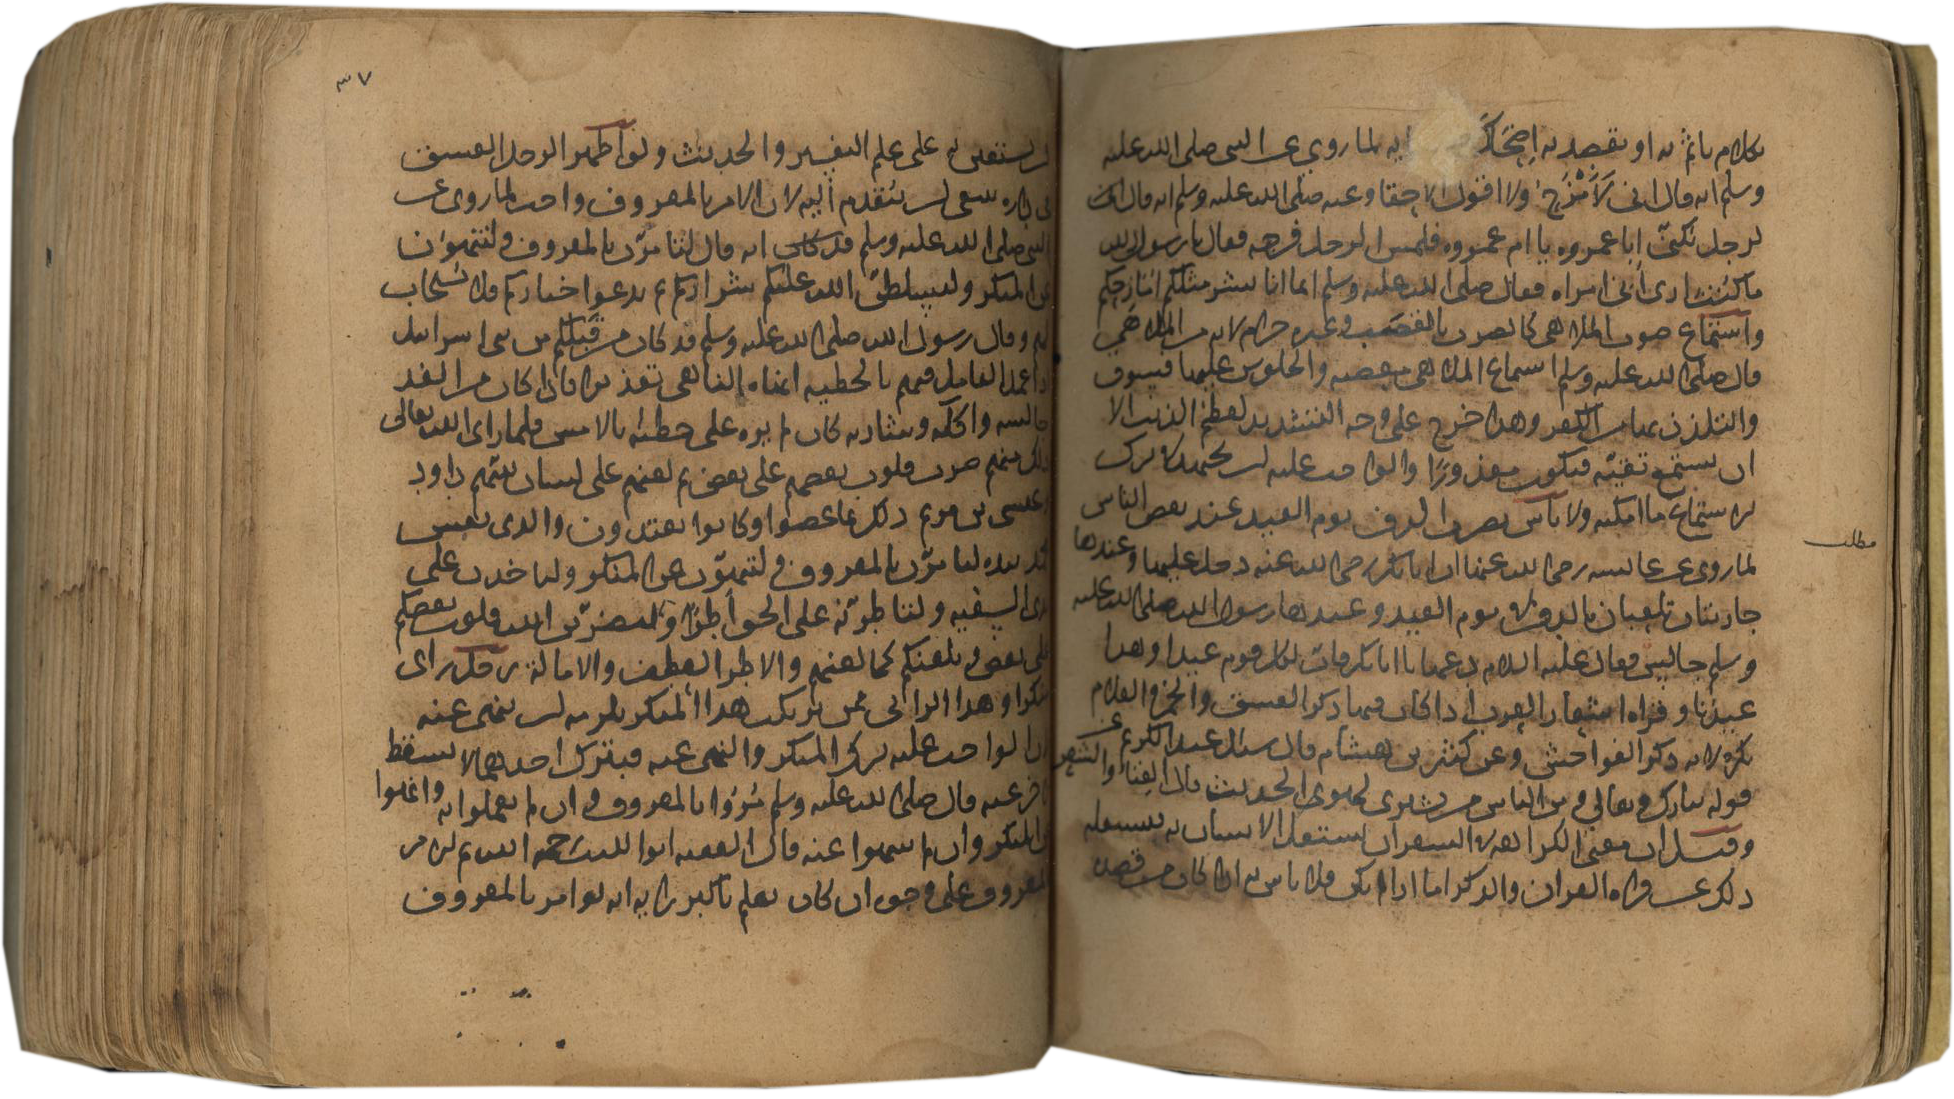 بكلام يأثم به او يقصد به اضحاك لما روي عن النبي صلى الله عليه
وسلم انه قال اني لأمزح ولا اقول الا حقا وعنه صلى الله عليه وسلم انه قال
لرجل يكنى ابا عمروه يا ام عمروه فلمس الرجل فرجه فقال يا رسول الله
ما كنت ارى اني امراه فقال صلى الله عليه وسلم انما انا بشر مثلكم امازحكم
واستماع صوت الملاهي كالضرب بالقصب وغيره حرام لانه من الملاهي
قال صلى الله عليه وسلم استماع الملاهي معصيه والجلوس عليها فسوق
والتلذذ بها من الكفر وهذا خرج على وجه التشديد لعظم الذنب الا
ان يستمع بغتة فيكون معذورا والواجب عليه ان يجتهد ترك
الاستماع ما امكنه ولا باس بضرب الدف يوم العيد عند بعض الناس
لما روي عن عائشه رضي الله عنها ان ابا بكر رضي الله عنه دخل عليها وعندها
جاريتان تلعبان بالدف يوم العيد وعندها رسول الله صلى الله عليه
وسلم جالس فقال عليه السلام دعهما يا ابا بكر فان لكل قوم عيدا وهذا
عيدنا وقراه اشعار العرب اذا كان فيها ذكر الفسق والخمر والغلام
يكره لانه ذكر الفواحش وعن كثير بن هشام قال سئل عبد الكريم عن
قوله تبارك وتعالى ومن الناس من يشتري لهو الحديث قال الغناء والشعر
وقيل ان معنى الكراهه في الشعر ان يشتغل الانسان به يشغله
ذلك عن قراه القران والذكر اما اذا لم يكن فلا باس به اذا كان من قصده
مطلب
٣٧
ان يستعين به على علم التفسير والحديث ولو اظهر الرجل الفسق
في داره ينبغي ان يتقدم اليه لان الامر بالمعروف واجب لما روي عن
النبي صلى الله عليه وسلم انه قال لتأمرن بالمعروف ولتنهون
عن المنكر وليسلطن الله عليكم شراركم ثم يدعوا خياركم فلا يستجاب
لهم وقال رسول الله صلى الله عليه وسلم قد كان من قبلكم من بني اسرائيل
اذا عمل العامل فيهم بالخطيه اتاه الناهي تعذيرا فاذا كان من الغد
جالسه واكله وشاربه كان لم يره على خطيئه بالامس فلما راى الله تعالى
ذلك منهم ضرب قلوب بعضهم على بعض ثم لعنهم على لسان نبيهم داود
وعيسى بن مريم ذلك بما عصوا وكانوا يعتدون والذي نفس
محمد بيده لتأمرن بالمعروف ولتنهون عن المنكر ولتأخذن على
يدي السفيه ولتأطرنه على الحق اطرا او ليضربن الله قلوب بعضكم
على بعض ويلعنكم كما لعنهم والاطر العطف والامالة رجل راى
منكرا وهذا الرائي ممن يرتكب هذا المنكر يلزمه ان ينهى عنه
لان الواجب عليه ترك المنكر والنهي عنه فبترك احدهما لا يسقط
الاخر عنه قال صلى الله عليه وسلم مروا بالمعروف وان لم تعملوا به وانهوا
عن المنكر وان لم تنتهوا عنه قال الفقيه ابو الليث رحمه الله ثم الامر
بالمعروف على وجوه ان كان يعلم باكبر رايه انه لو امر بالمعروف